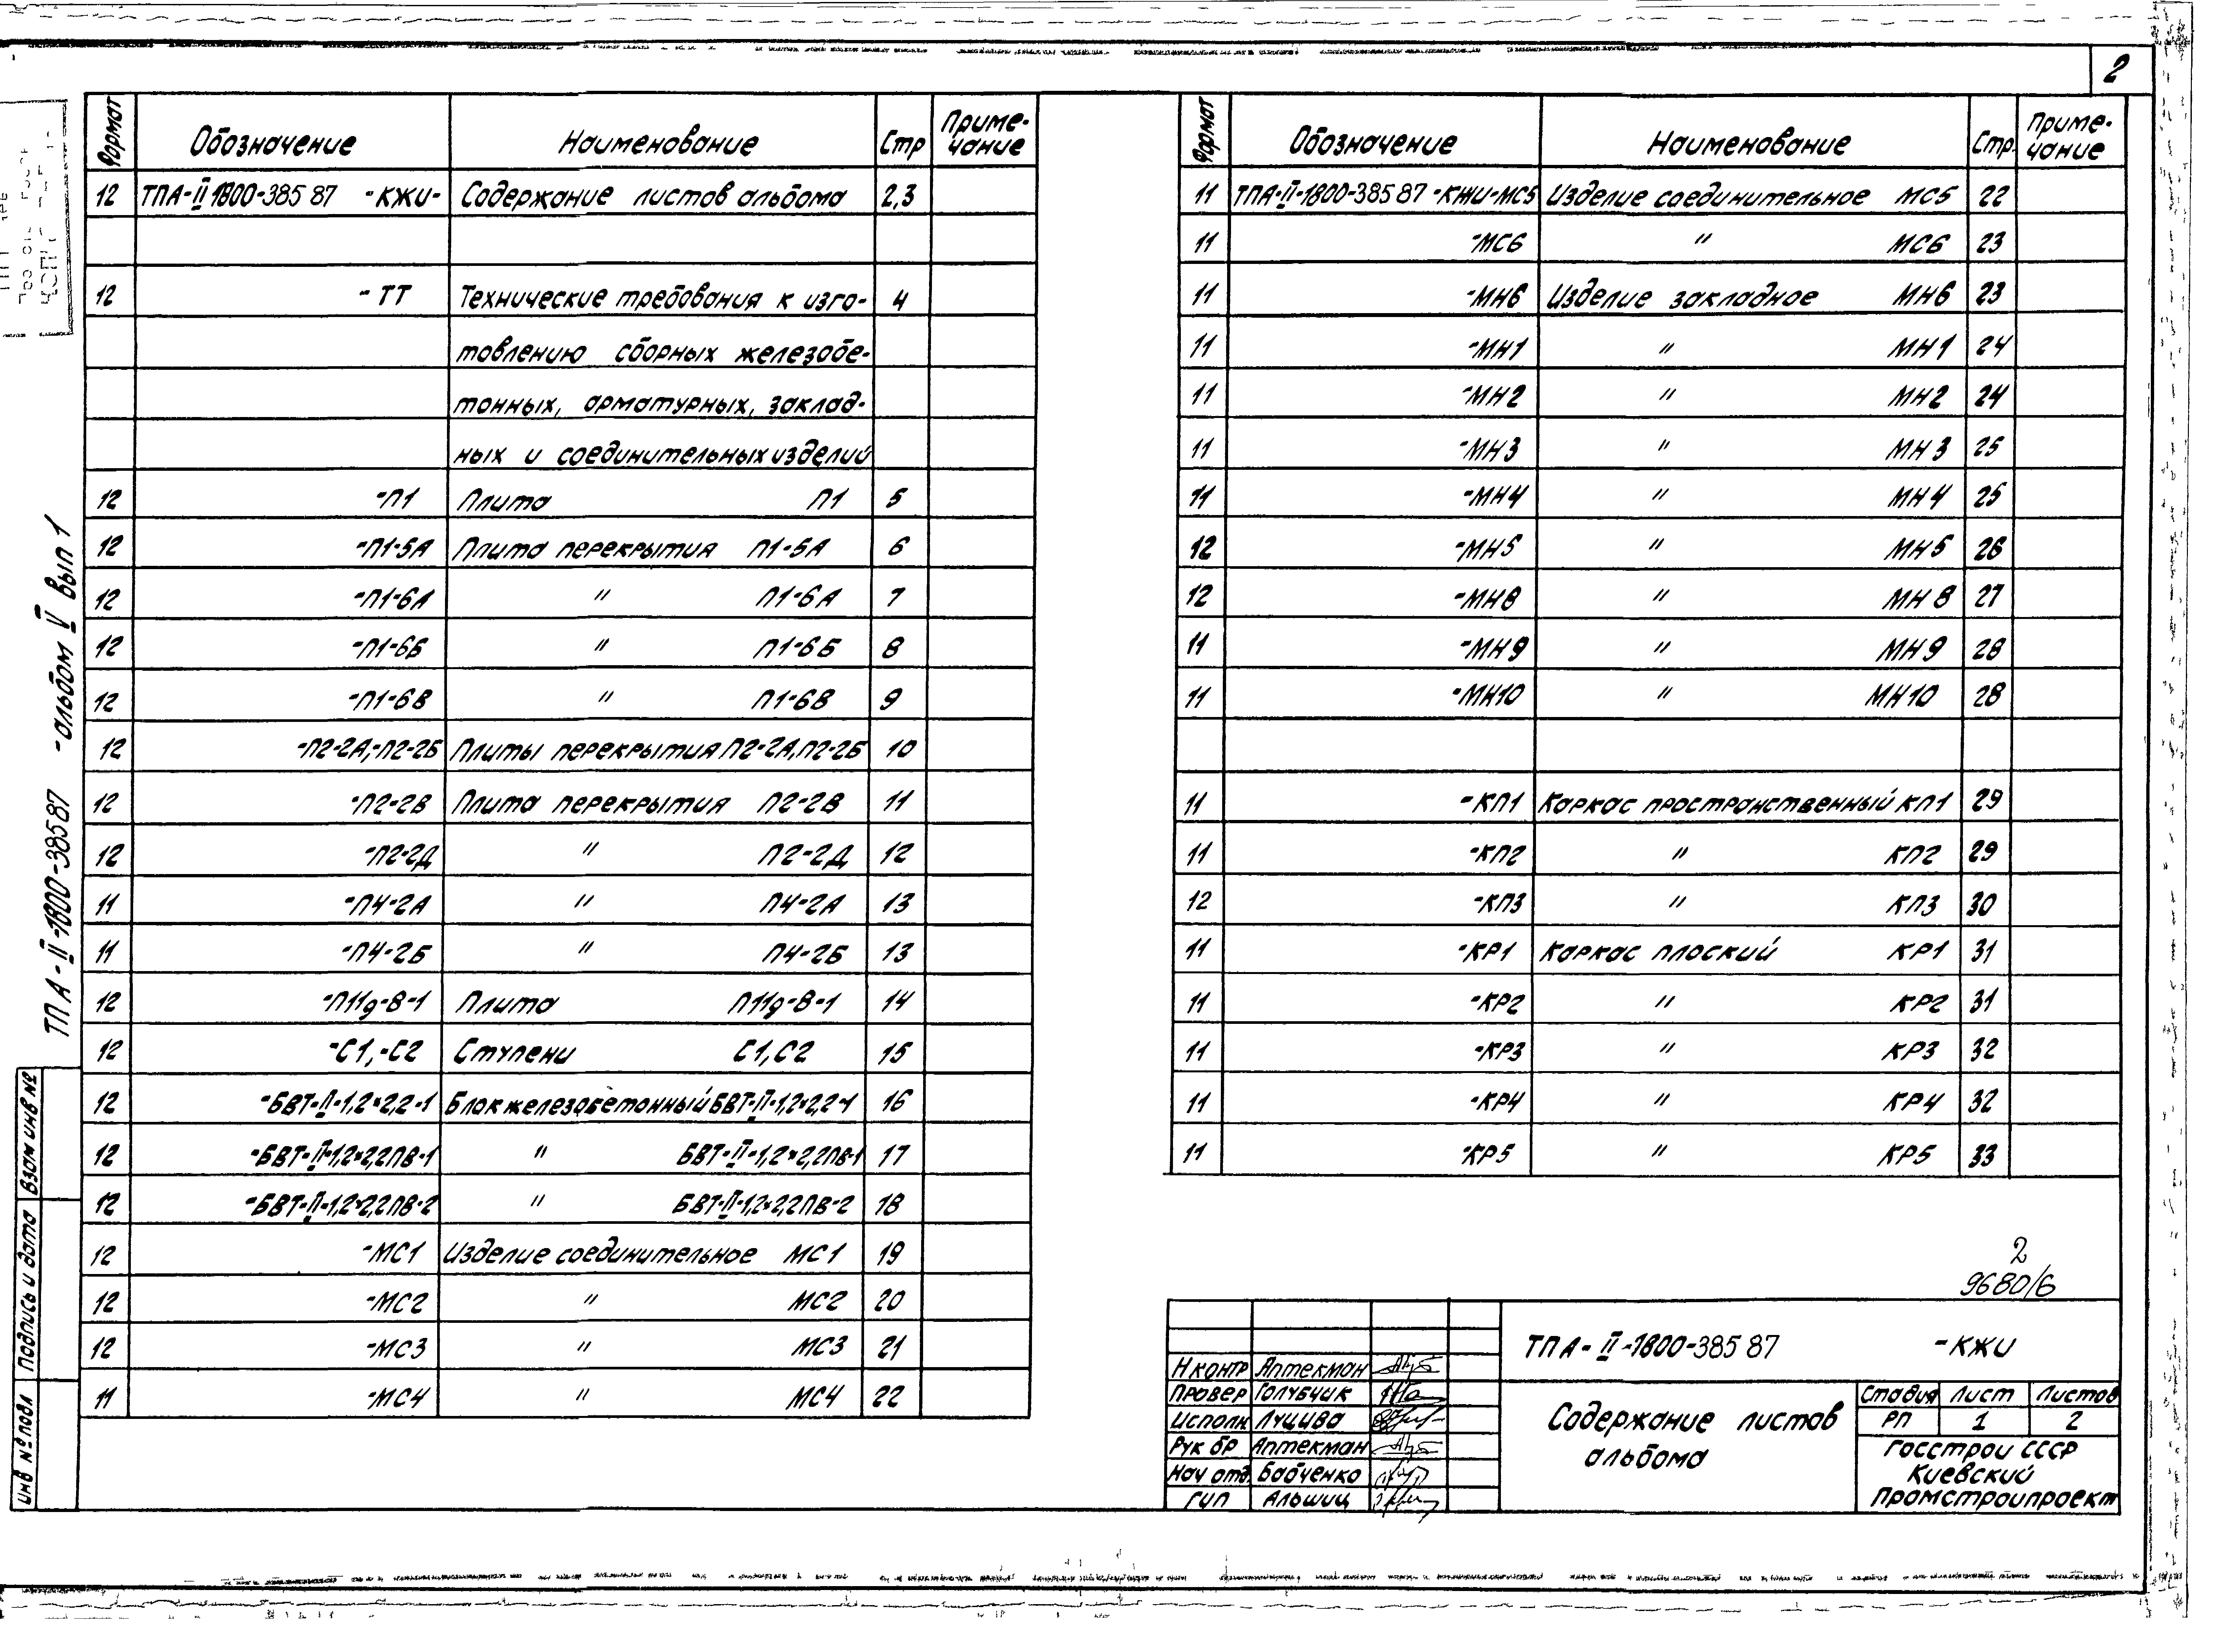 2
Формат Обозначение Наименование Стр Приме-
чание
12 ТПА-II-1800-385 87 -КЖИ- Содержание листов альбома 2,3
12 -ТТ Технические требования к изго- 4
товлению сборных железобе-
тонных, арматурных, заклад-
ных и соединительных изделий
12 -П1 Плита П1 5
12 -П1-5А Плита перекрытия П1-5А 6
12 -П1-6А " П1-6А 7
12 -П1-6Б " П1-6Б 8
12 -П1-6В " П1-6В 9
12 -П2-2А,-П2-2Б Плиты перекрытия П2-2А,П2-2Б 10
12 -П2-2В Плита перекрытия П2-2В 11
12 -П2-2Д " П2-2Д 12
11 -П4-2А " П4-2А 13
11 -П4-2Б " П4-2Б 13
12 -П11д-8-1 Плита П11д-8-1 14
12 -С1,-С2 Ступени С1,С2 15
12 -БВТ-II-1,2×2,2-1 Блок железобетонный БВТ-II-1,2×2,2-1 16
12 -БВТ-II-1,2×2,2ПВ-1 " БВТ-II-1,2×2,2ПВ-1 17
12 -БВТ-II-1,2×2,2ПВ-2 " БВТ-II-1,2×2,2ПВ-2 18
12 -МС1 Изделие соединительное МС1 19
12 -МС2 " МС2 20
12 -МС3 " МС3 21
11 -МС4 " МС4 22
Формат Обозначение Наименование Стр. Приме-
чание
11 ТПА-II-1800-385 87 -КЖИ-МС5 Изделие соединительное МС5 22
11 -МС6 " МС6 23
11 -МН6 Изделие закладное МН6 23
11 -МН1 " МН1 24
11 -МН2 " МН2 24
11 -МН3 " МН3 25
11 -МН4 " МН4 25
12 -МН5 " МН5 26
12 -МН8 " МН8 27
11 -МН9 " МН9 28
11 -МН10 " МН10 28
11 -КП1 Каркас пространственный КП1 29
11 -КП2 " КП2 29
12 -КП3 " КП3 30
11 -КР1 Каркас плоский КР1 31
11 -КР2 " КР2 31
11 -КР3 " КР3 32
11 -КР4 " КР4 32
11 -КР5 " КР5 33
2
9680/6
ТПА-II-1800-385 87 -КЖИ
Н контр Аптекман
Провер Голубчик
Исполн Луцива
Рук бр Аптекман
Нач отд. Бабченко
ГИП Альшиц
Содержание листов
альбома
Стадия Лист Листов
РП 1 2
Госстрой СССР
Киевский
Промстройпроект
ТПА-II-1800-385 87 -альбом V вып 1
Взам инв №
Подпись и дата
Инв № подл